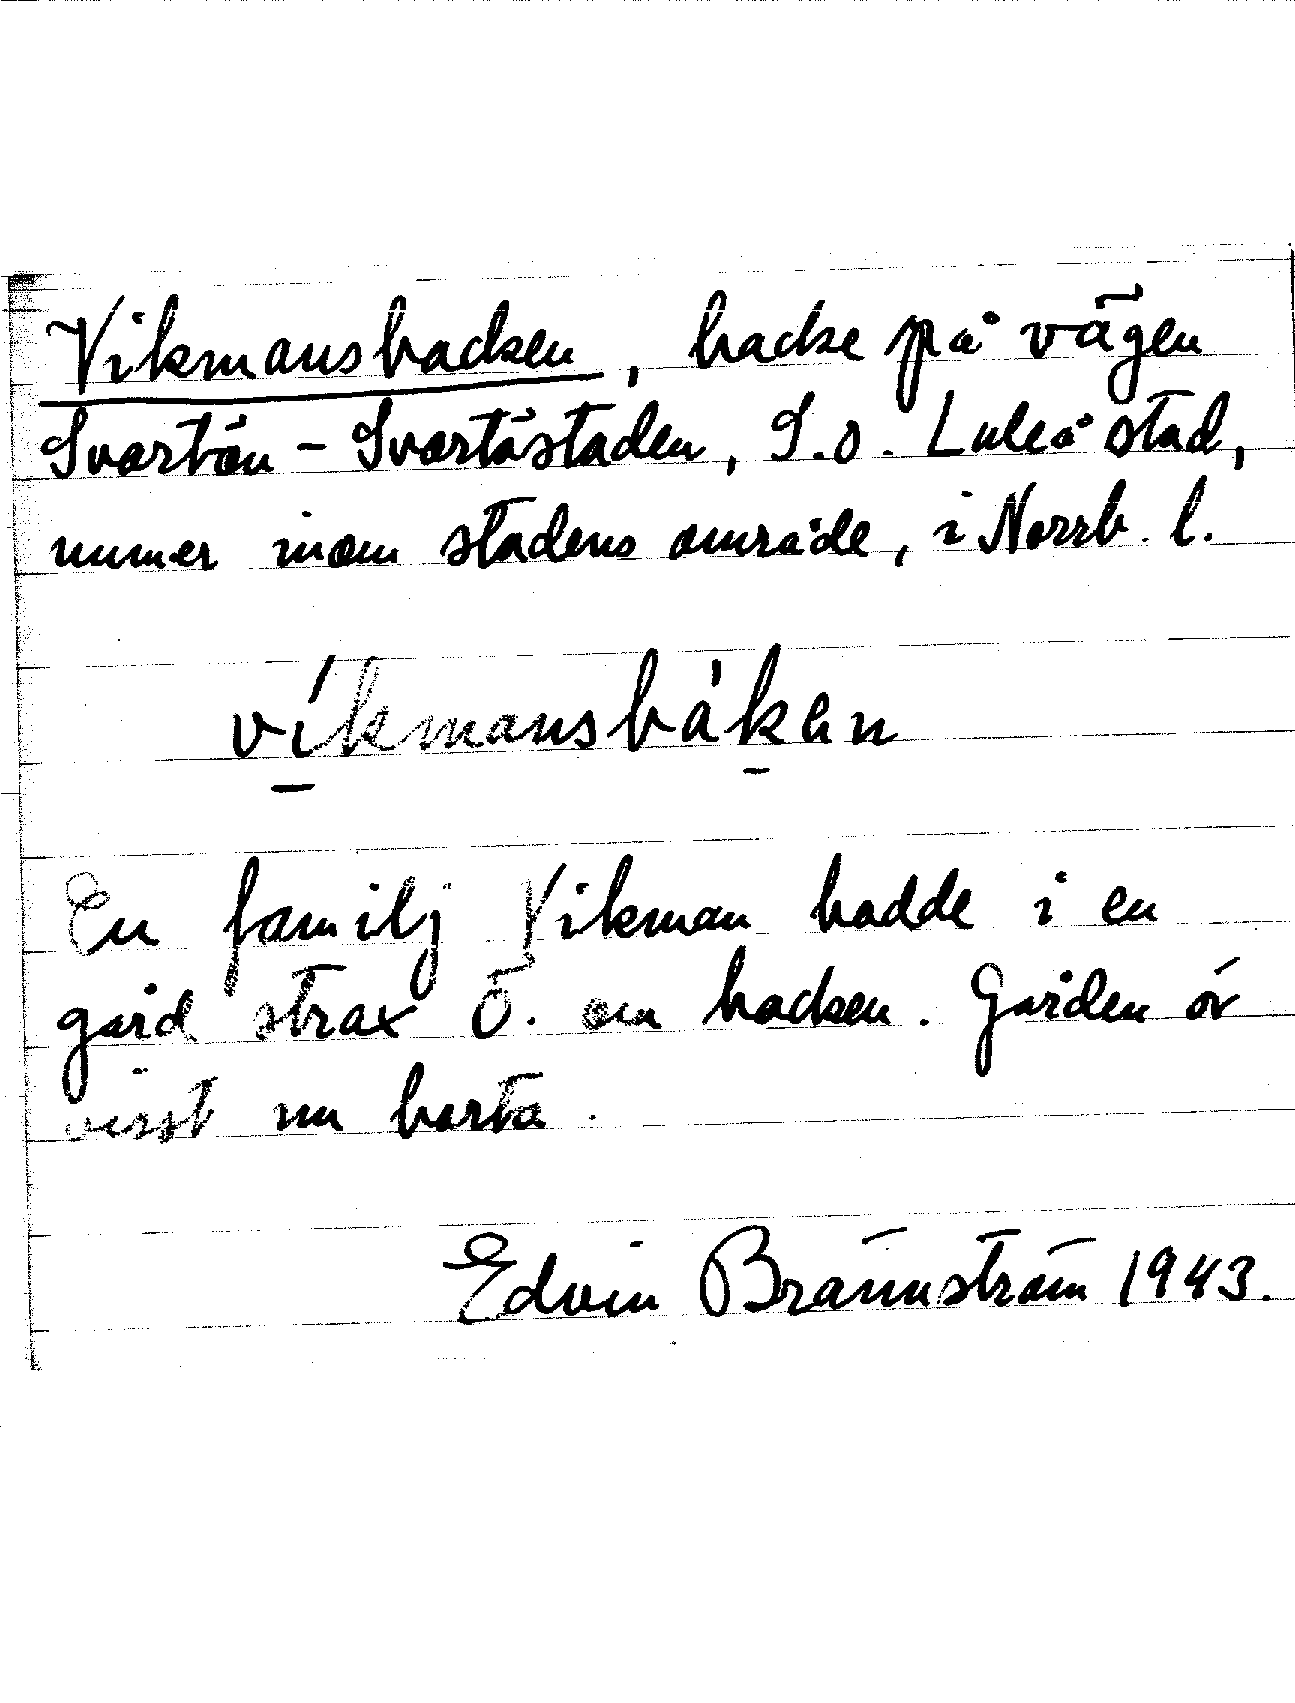 Vikmansbacken, backe på vägen
Svartön - Svartöstaden, S.o. Luleå stad,
numer inom stadens område, i Norrb. l.
víkmansbákan
En familj Vikman bodde i en
gård strax Ö. om backen. Gården är
visst nu borta.
Edvin Brännström 1943.